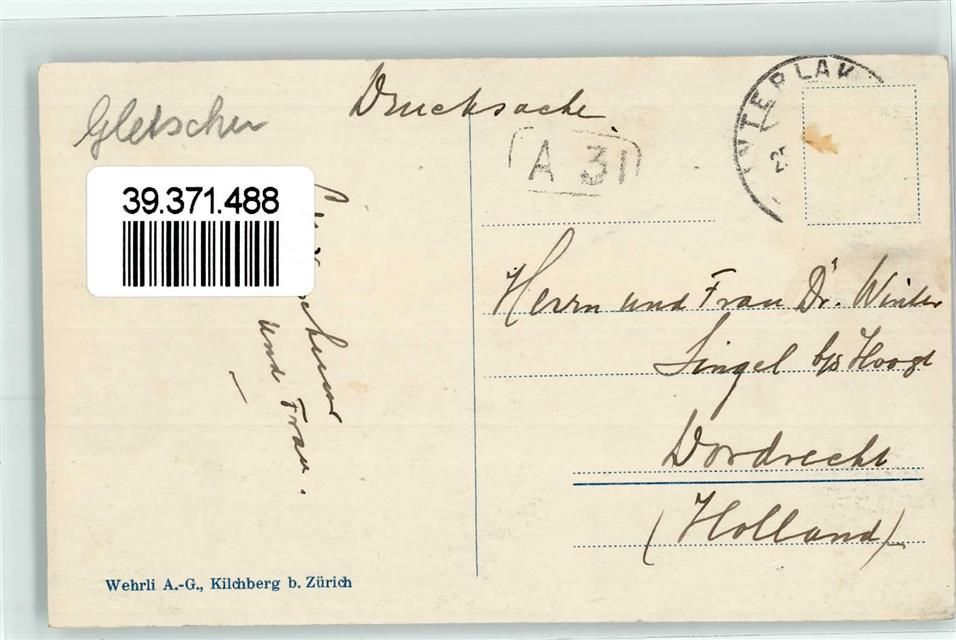 Gletscher
Drucksache.
INTERLAK
25
A 31
39.371.488
und Frau.
Herrn und Frau Dr. Winter
Singel b/s Hoogt
Dordrecht
(Holland)
Wehrli A.-G., Kilchberg b. Zürich